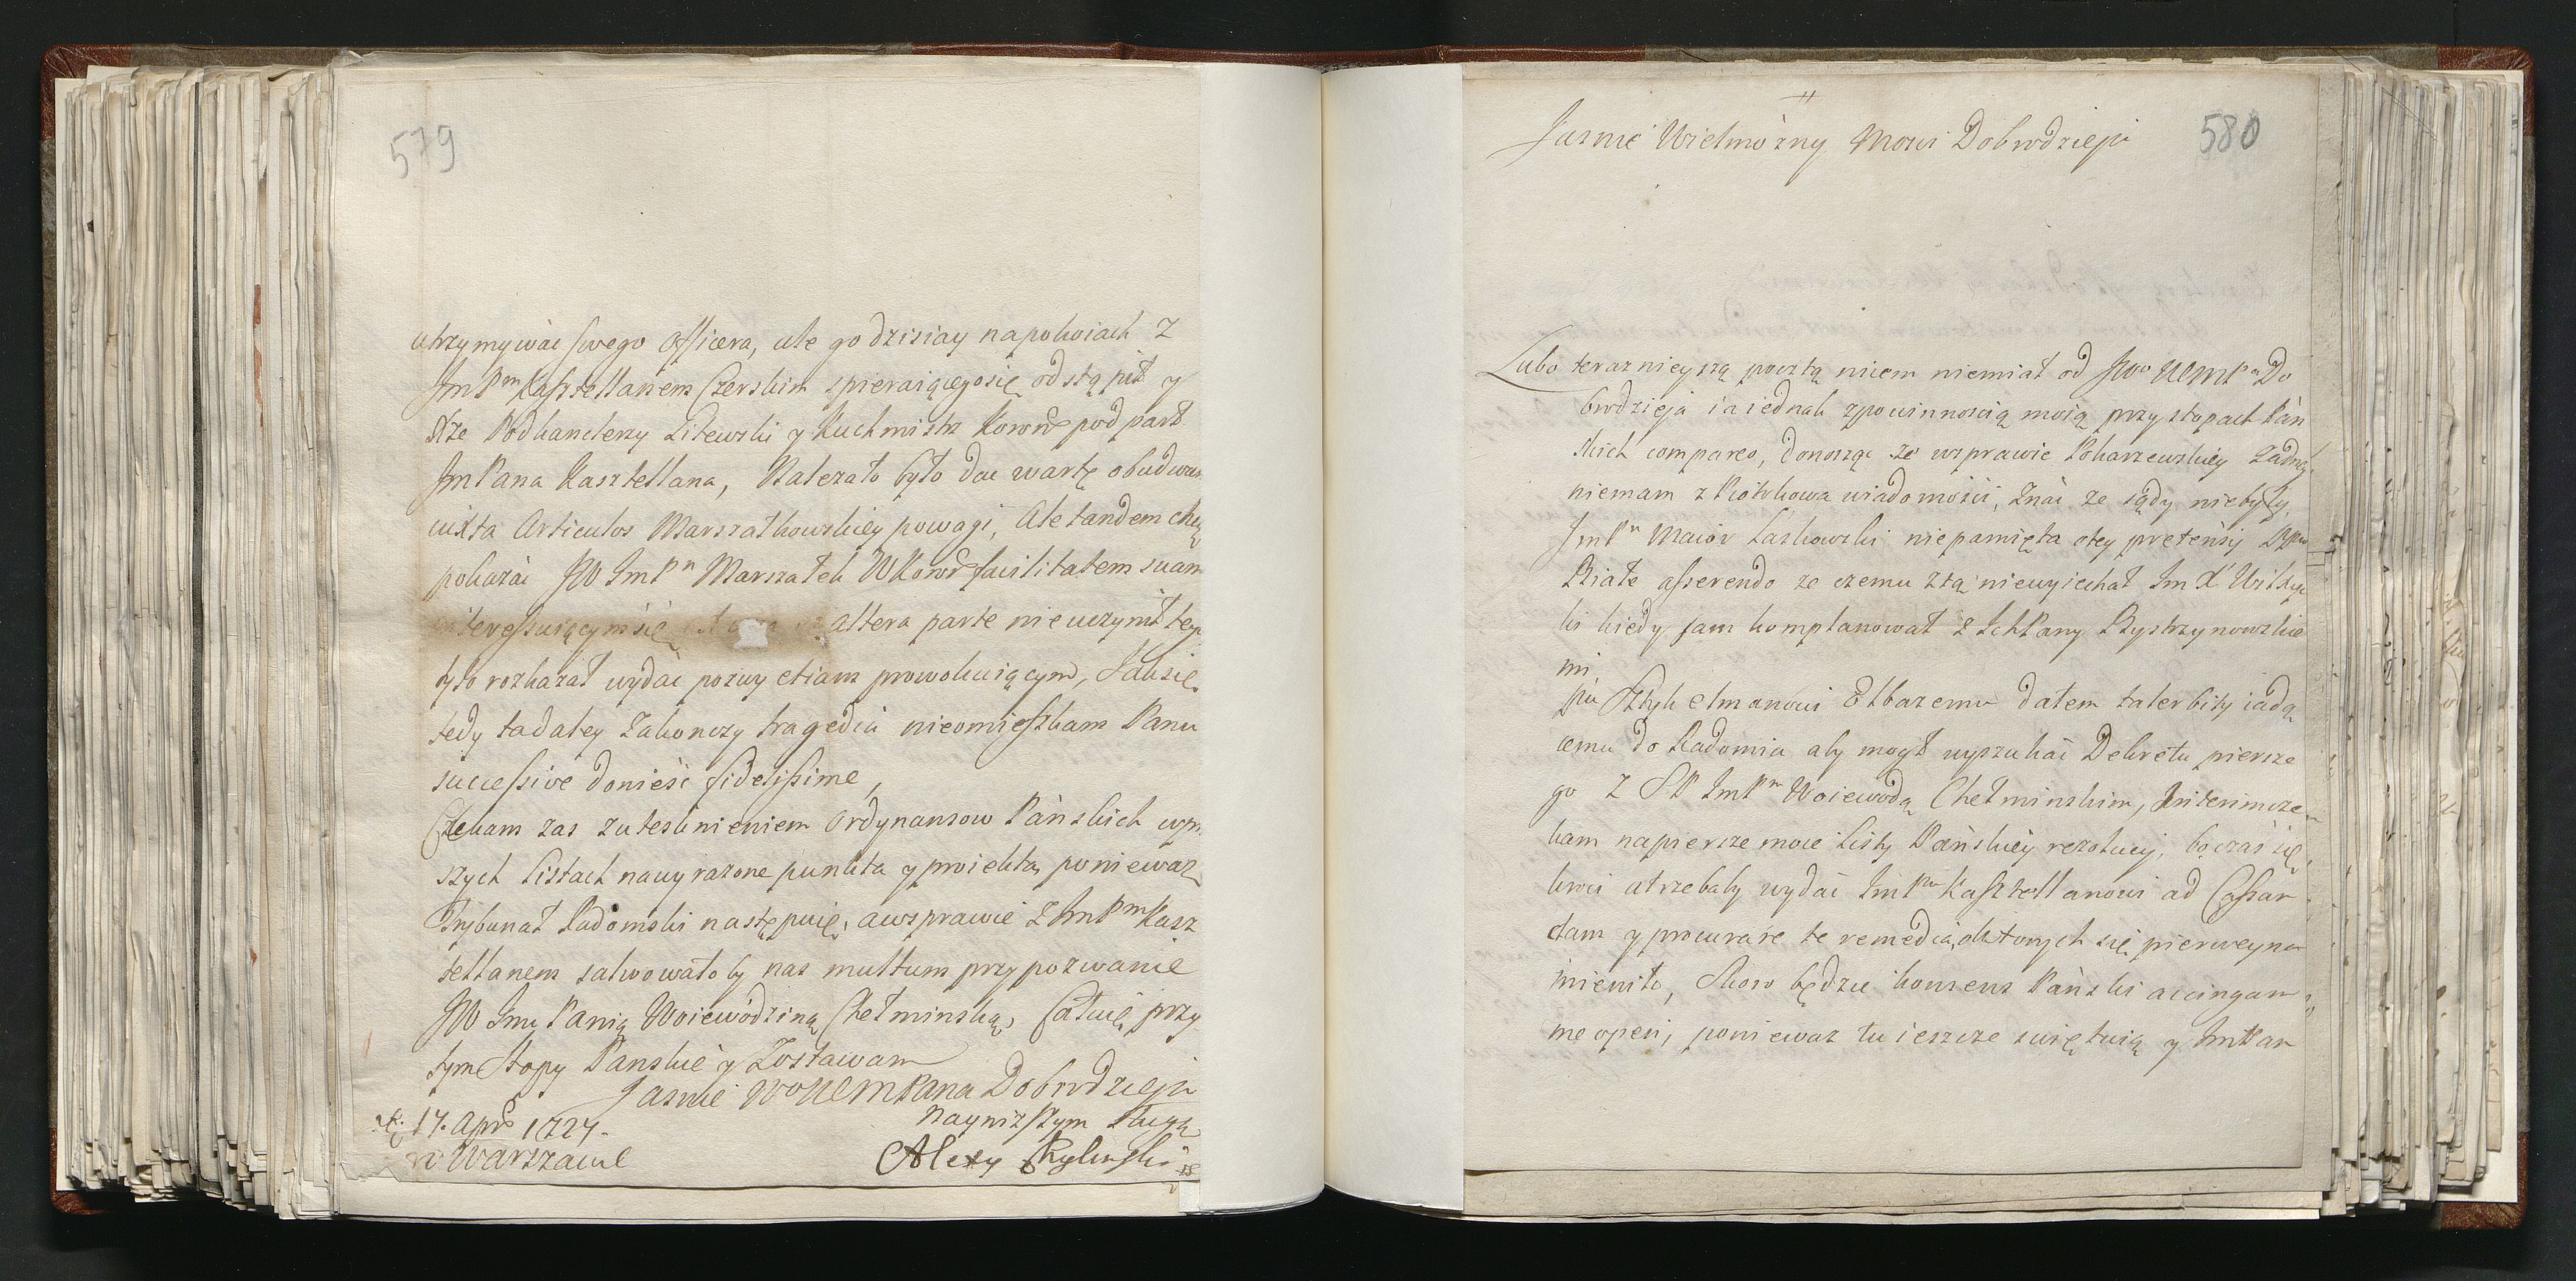 579
utrzymywać swego Officera, ale go dzisiay napokoiach z
ImPm Kasztellanem Czerskim spieraiącegosię odstąpił y
Xże Podkanclerzy Litewski y Kuchmistrz Koronny pod part
ImPana Kasztellana, Należało było dac wartę obudwu
iuxta Articulos Marszałkowskiey powagi, Ale tandem chcąc
pokazać JW ImPn Marszałek WKoron facilitatem suam
interessuiącymsię altera parte nieuczynił tego
tylo rozkazał wydać pozwy etiam prowokuiącym, Jaksię
tedy ta daley zakonczy tragedia nieomieszkam Panu
successive donieść fidelissime,
Czekam zas zutesknieniem Ordynansow Pańskich wpr
szych listach nawyrażone punkta y proiekta, ponieważ
Trybunał Radomski następuie, awsprawie z ImPm Kasz
tellanem salwowałoby nas multum przypozwanie
JW Im Panią Woiewodziną Chełminską, Całuię przy
tym Stopy Panskie y Zostawam
Jasnie Wo WMPana Dobrodzieja
d. 17. Apr 1727.
Naynizszym sługą
w Warszawie
Alexy Rylinski
580
Jasnie Wielmożny Mosci Dobrodzieju
Lubo teraznieyszą pocztą nicem niemiał od JWo WMPa Do
brodzieja ia iednak zpowinnoscią moią przy stopach Pań
skich compareo, donosząc że wsprawie Pokarzewskiey żadney
niemam z Piotrkowa wiadomości, Znać że sądy niebyły,
ImPn Maior Laskowski niepamięta otey pretensij
Białe asserendo ze czemu ztą niewyiechał Im X
ki kiedy sam komplanował z IchPany Bystrzynowskie
mi
Pu Sztykelmanowi Elbazemu dałem taler bity iadą
cemu do Radomia aby mogł wyszukać Dekretu piersze
go z SP ImPm Woiewodą Chełminskim, Interim cze
kam napiersze moie listy Pańskiey rezolucij, bo czas się
kroci atrzebaby wydać ImPu Kasztellanowi ad Cassan
dam y procurare te remedia, oktorych się pierwey na
mieniło, Skoro będzie konsens Pański accingam
me operi, ponieważ tu ieszcze swiętuią y ImPan